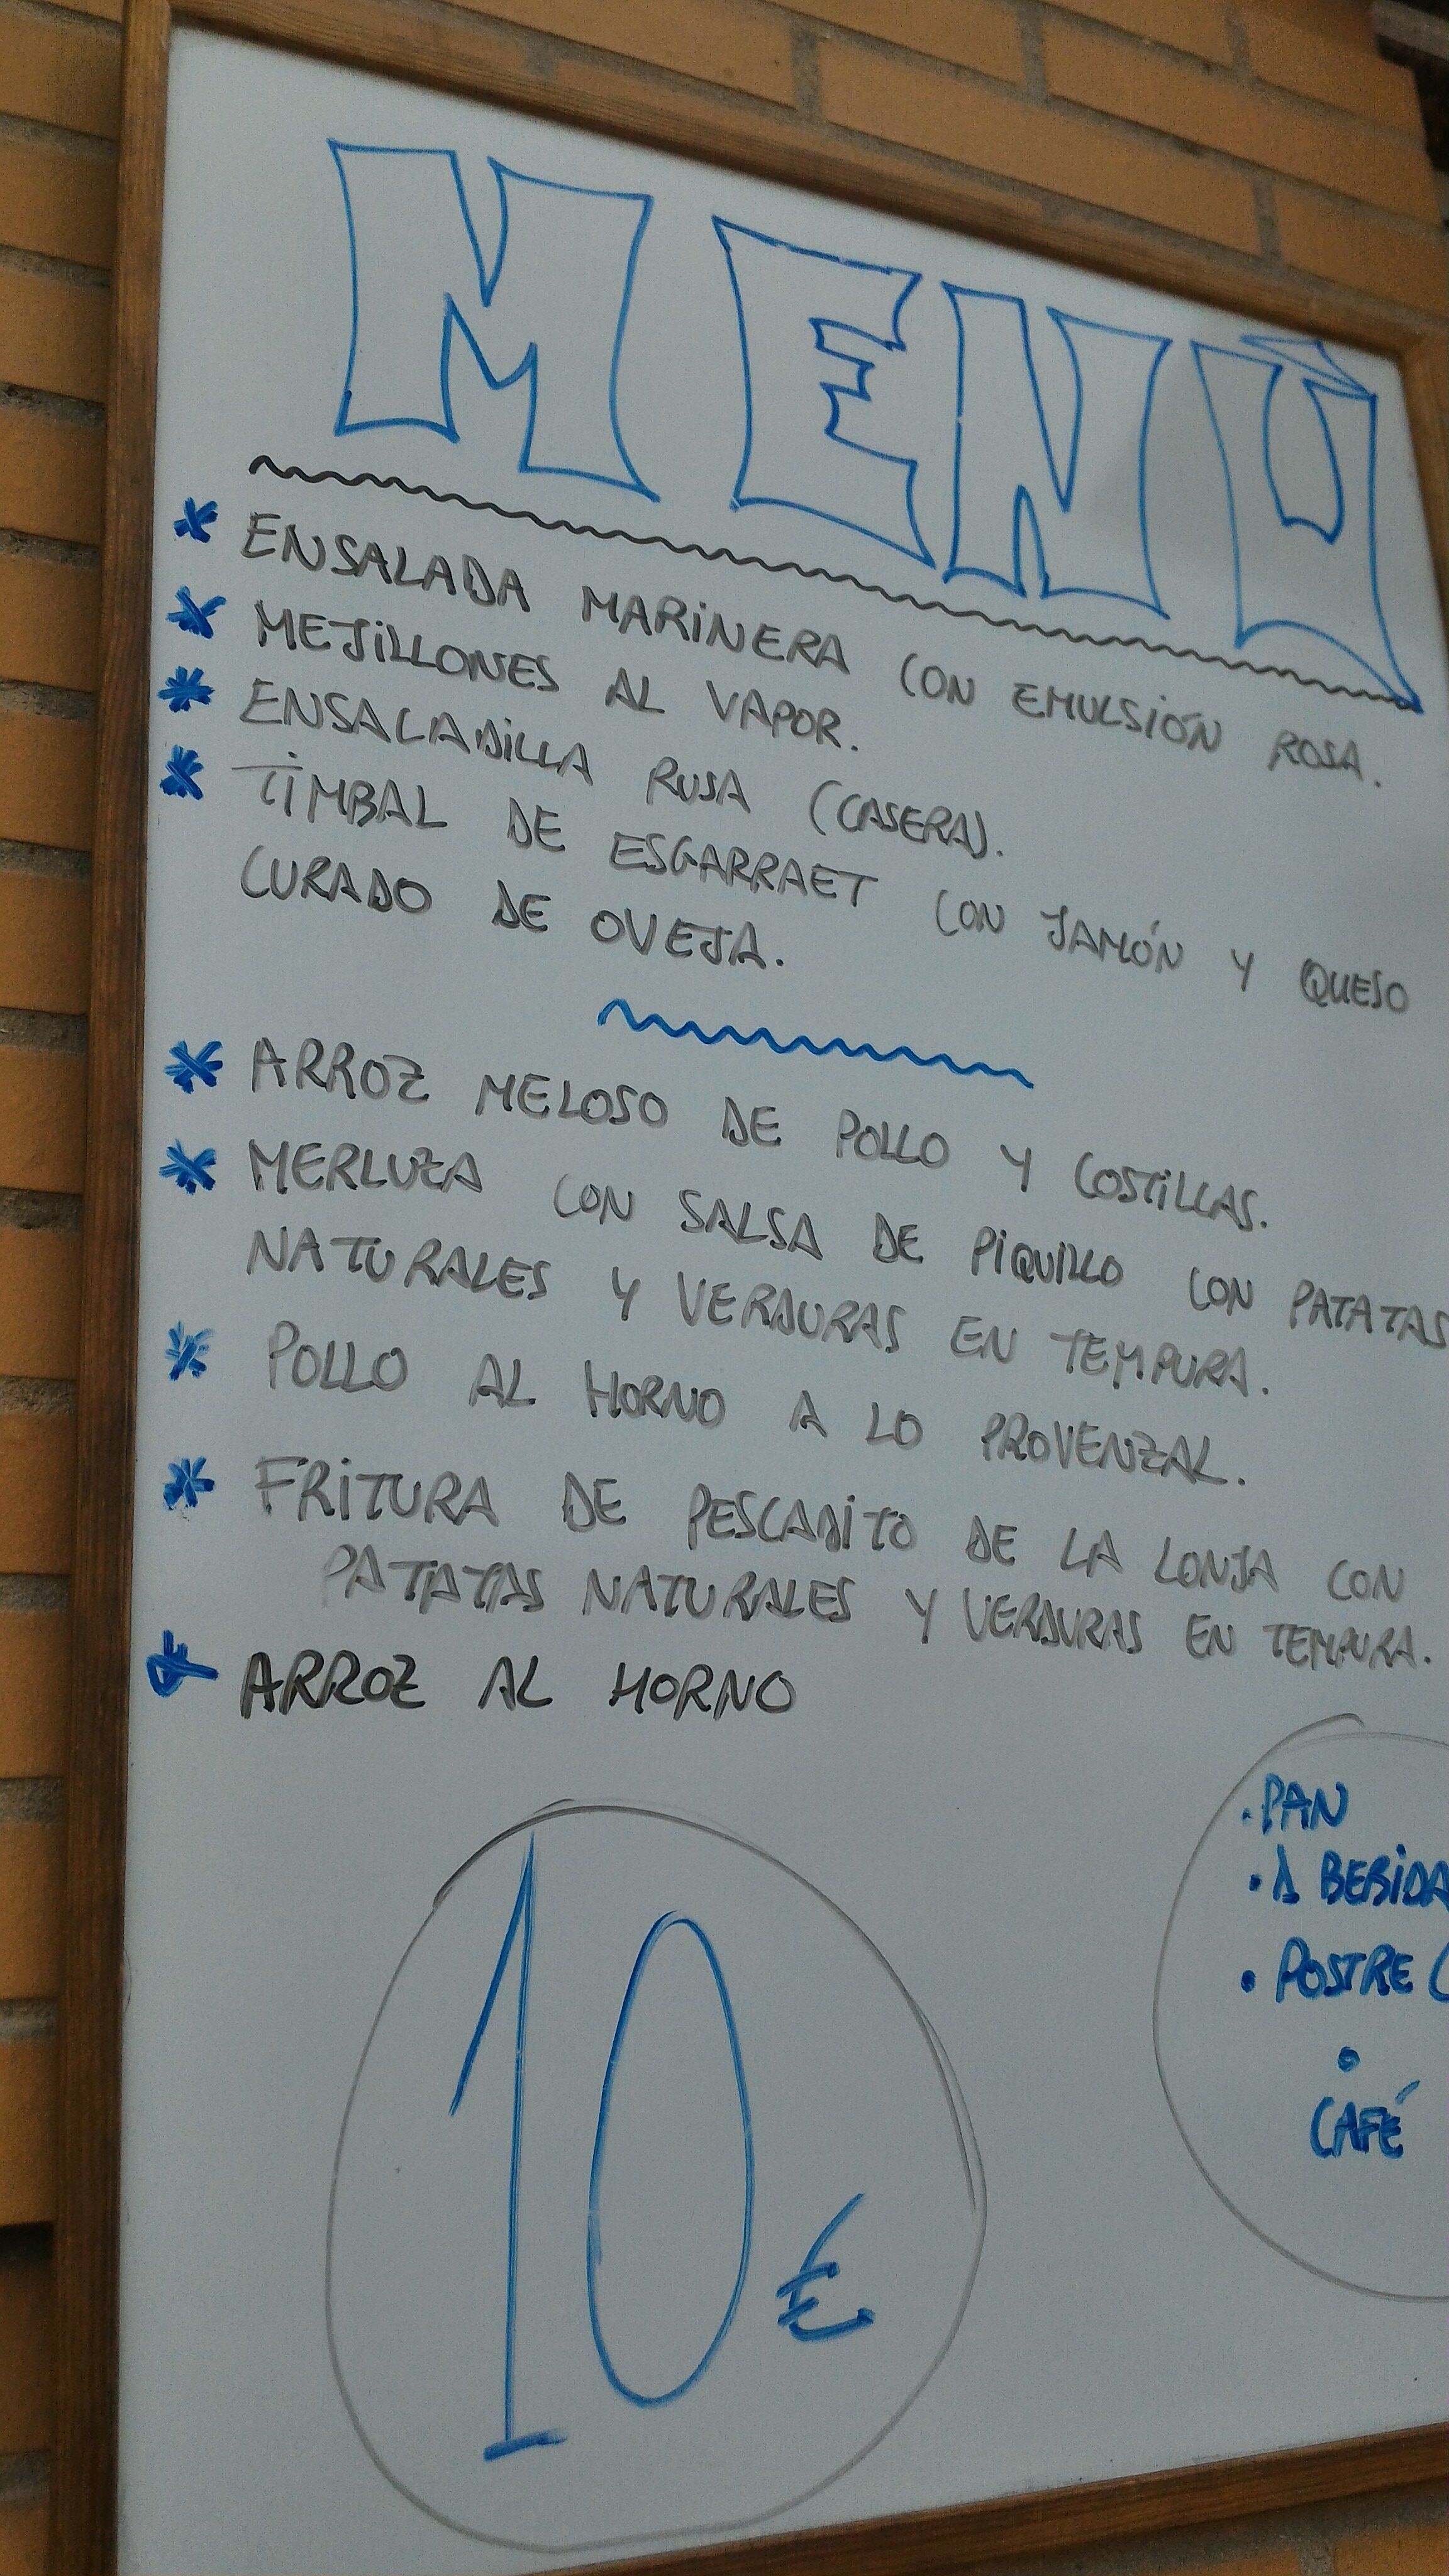 MENÚ
* ENSALADA MARINERA CON EMULSIÓN ROSA.
* MEJILLONES AL VAPOR.
* ENSALADILLA RUSA (CASERA).
* TIMBAL DE ESGARRAET CON JAMÓN Y QUESO
CURADO DE OVEJA.
* ARROZ MELOSO DE POLLO Y COSTILLAS.
* MERLUZA CON SALSA DE PIQUILLO CON PATATAS
NATURALES Y VERDURAS EN TEMPURA.
* POLLO AL HORNO A LO PROVENZAL.
* FRITURA DE PESCADITO DE LA LONJA CON
PATATAS NATURALES Y VERDURAS EN TEMPURA.
* ARROZ AL HORNO
10€
• PAN
• 1 BEBIDA
• POSTRE (
•
CAFÉ